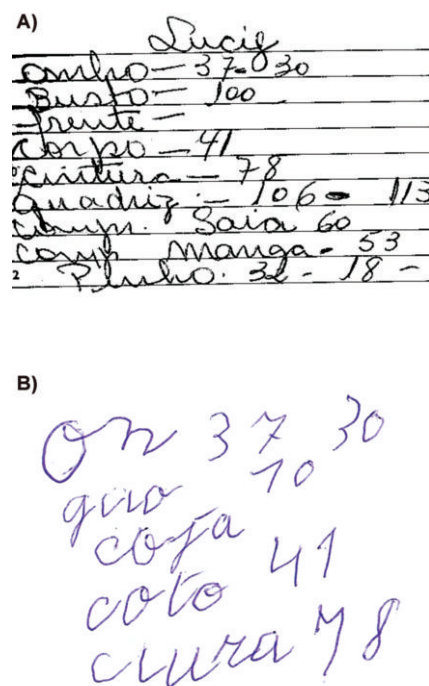 A)
Lucig
ombro - 37 - 30
Busto - 100
frente -
corpo - 41
cintura - 78
quadriz - 106 - 113
comp. Saia 60
comp manga - 53
2 Punho. 32 - 18 -
B)
On 37 30
giro 10
cofa
coto 41
ciura 78